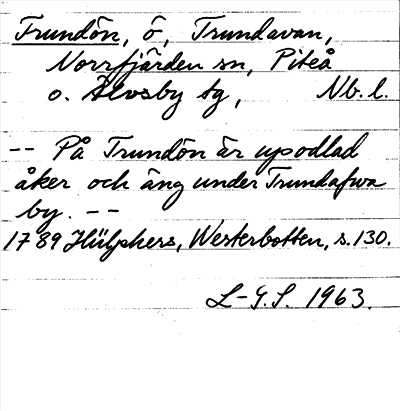 Trundön, ö, Trundavan,
Norrfjärden sn, Piteå
o. Älvsby tg, Nb. l.
-- På Trundön är upodlad
åker och äng under Trundafwa
by. --
1789 Hülphers, Westerbotten, s. 130.
L-G.S. 1963.